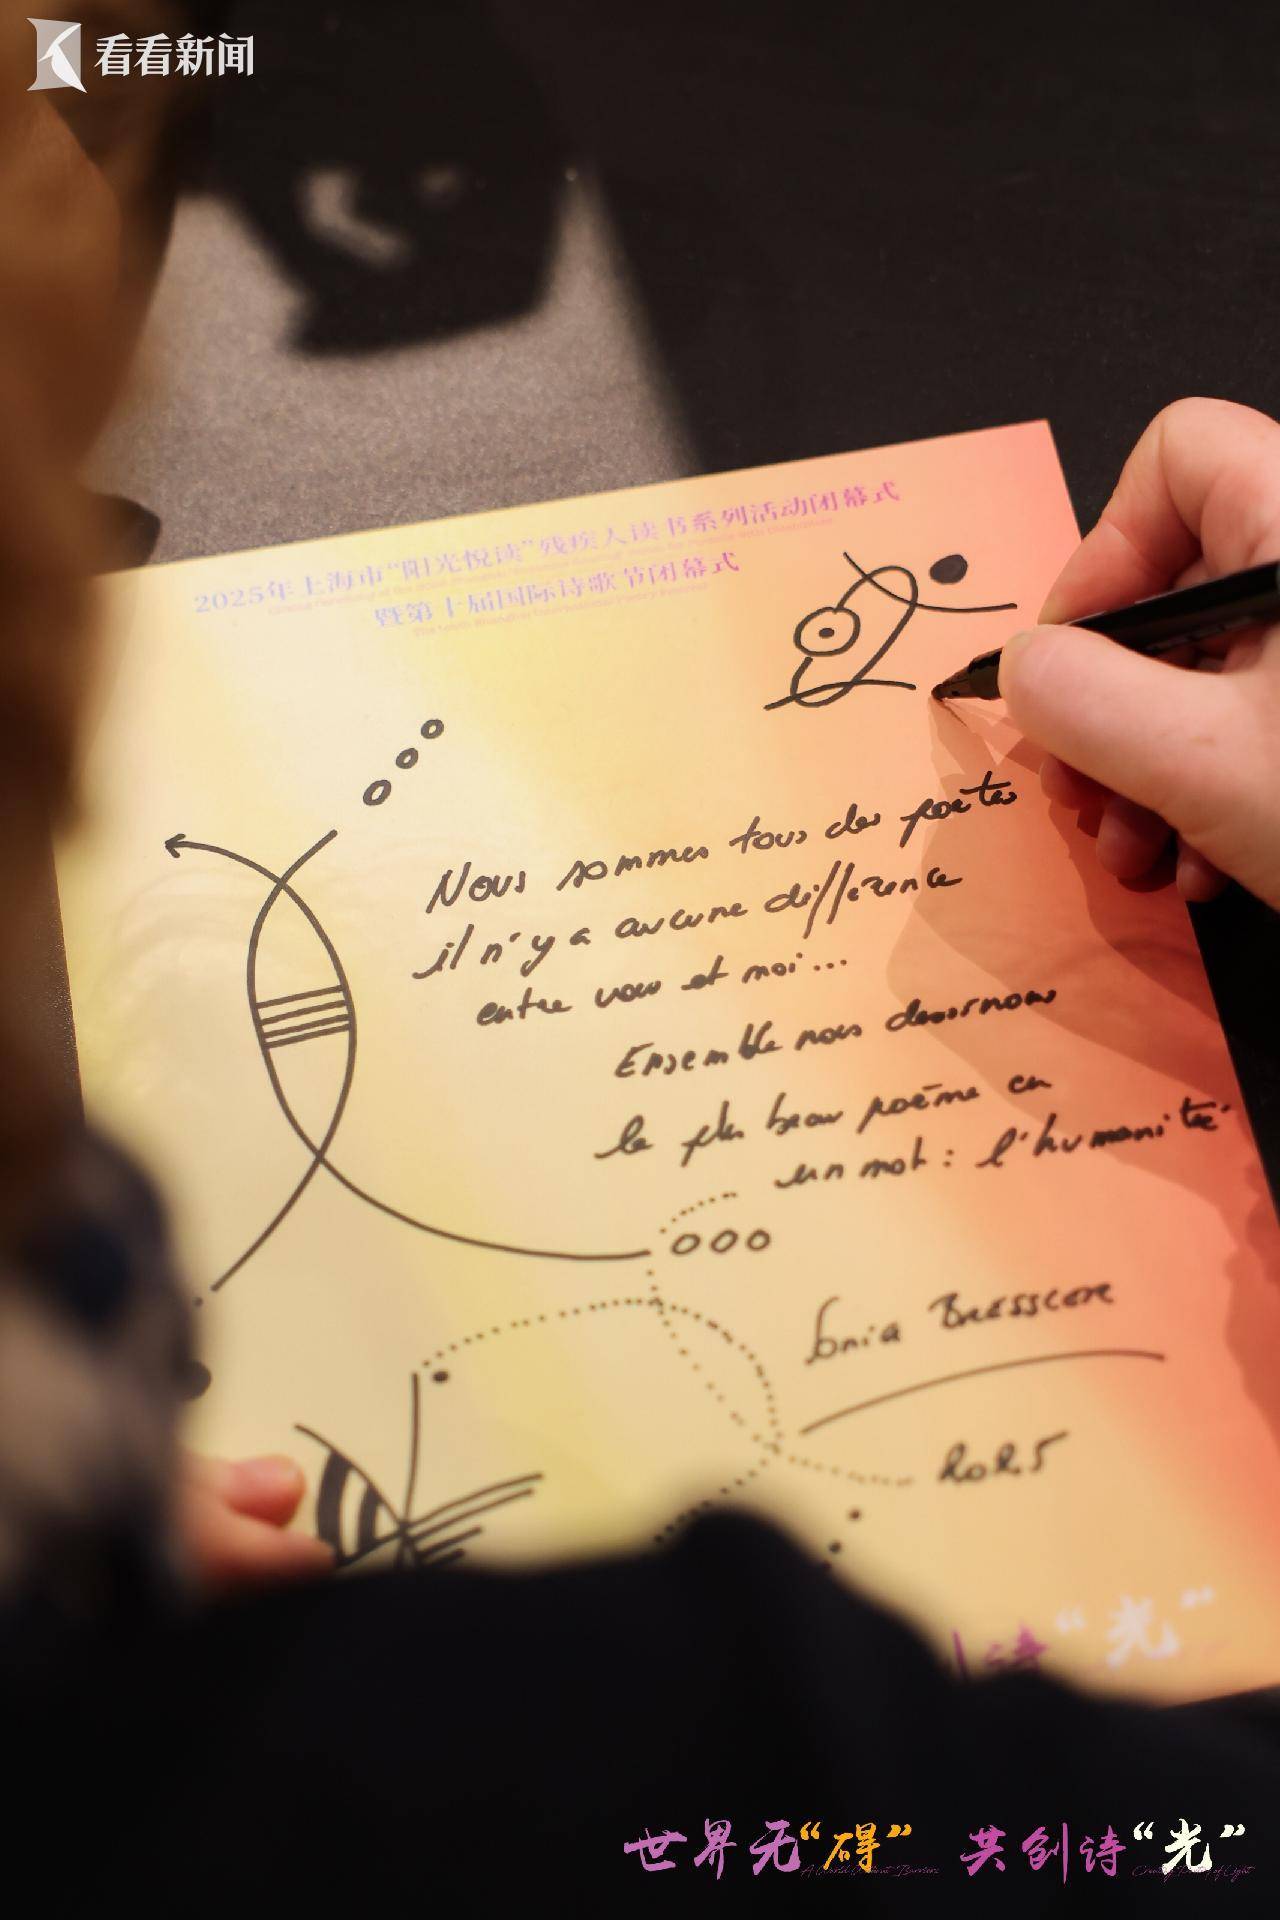 看看新闻
2025年上海市“阳光悦读”残疾人读书系列活动闭幕式
暨第十届国际诗歌节闭幕式
Nous sommes tous des poètes
il n'y a aucune différence
entre vous et moi...
Ensemble nous dessinons
le plus beau poème en
un mot : l'humanité
Sonia Bressler
2025
诗“光”
世界无“碍” 共创诗“光”
A World Without Barriers Creating Poetry of Light